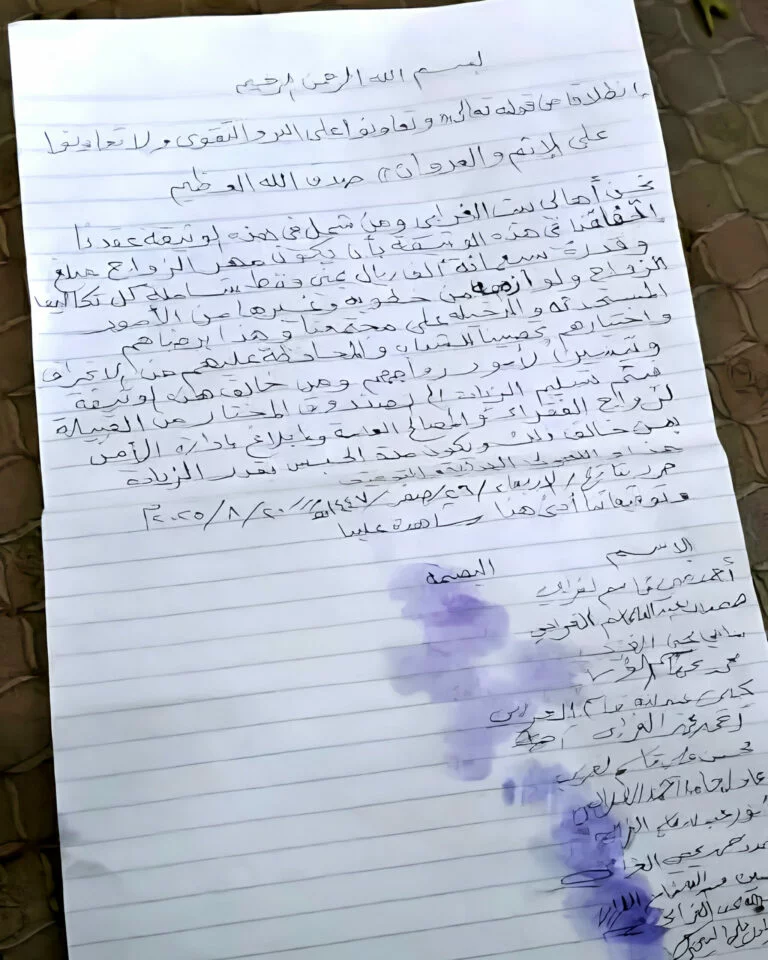 بسم الله الرحمن الرحيم
إنطلاقا من قوله تعالى " وتعاونوا على البر والتقوى ولا تعاونوا
على الإثم والعدوان " صدق الله العظيم
نحن أهالي بيت الغرابي ومن شمل في هذه الوثيقة عقدنا
اتفاقنا في هذه الوثيقة بأن يكون مهر الزواج مبلغ
وقدرة سبعمائة ألف ريال يمني فقط شاملة كل تكاليف
الزواج ولوازمه من خطوبه وغيرها من الأمور
المستحدثه والدخيله على مجتمعنا وهذا برضاهم
واختيارهم تحصينا للشباب والمحافظة عليهم من الإنحراف
وتيسيرا لأمور زواجهم ومن خالف هذه الوثيقة
فيتم تسليم الزيادة إلى صندوق المختار من القبيلة
لزواج الفقراء أو المصالح العامة وإبلاغ إدارة الأمن
بمن خالف ذلك وتكون مدة الحبس بقدر الزيادة
حرر بتاريخ / الاربعاء / ٢٦ / صفر / ١٤٤٧هـ ٢٠ / ٨ / ٢٠٢٥م
وتوقيعاتنا أدنى هنا شاهدة علينا
الاسم البصمه
أحمد قاسم الغرابي
عبدالله الغرابي
يحيى
محمد
عبدالله قاسم الغرابي
احمد محمد الغرابي
محسن علي قاسم الغرابي
عادل احمد الغرابي
أنور عبده قاسم
يحيى
الغرابي